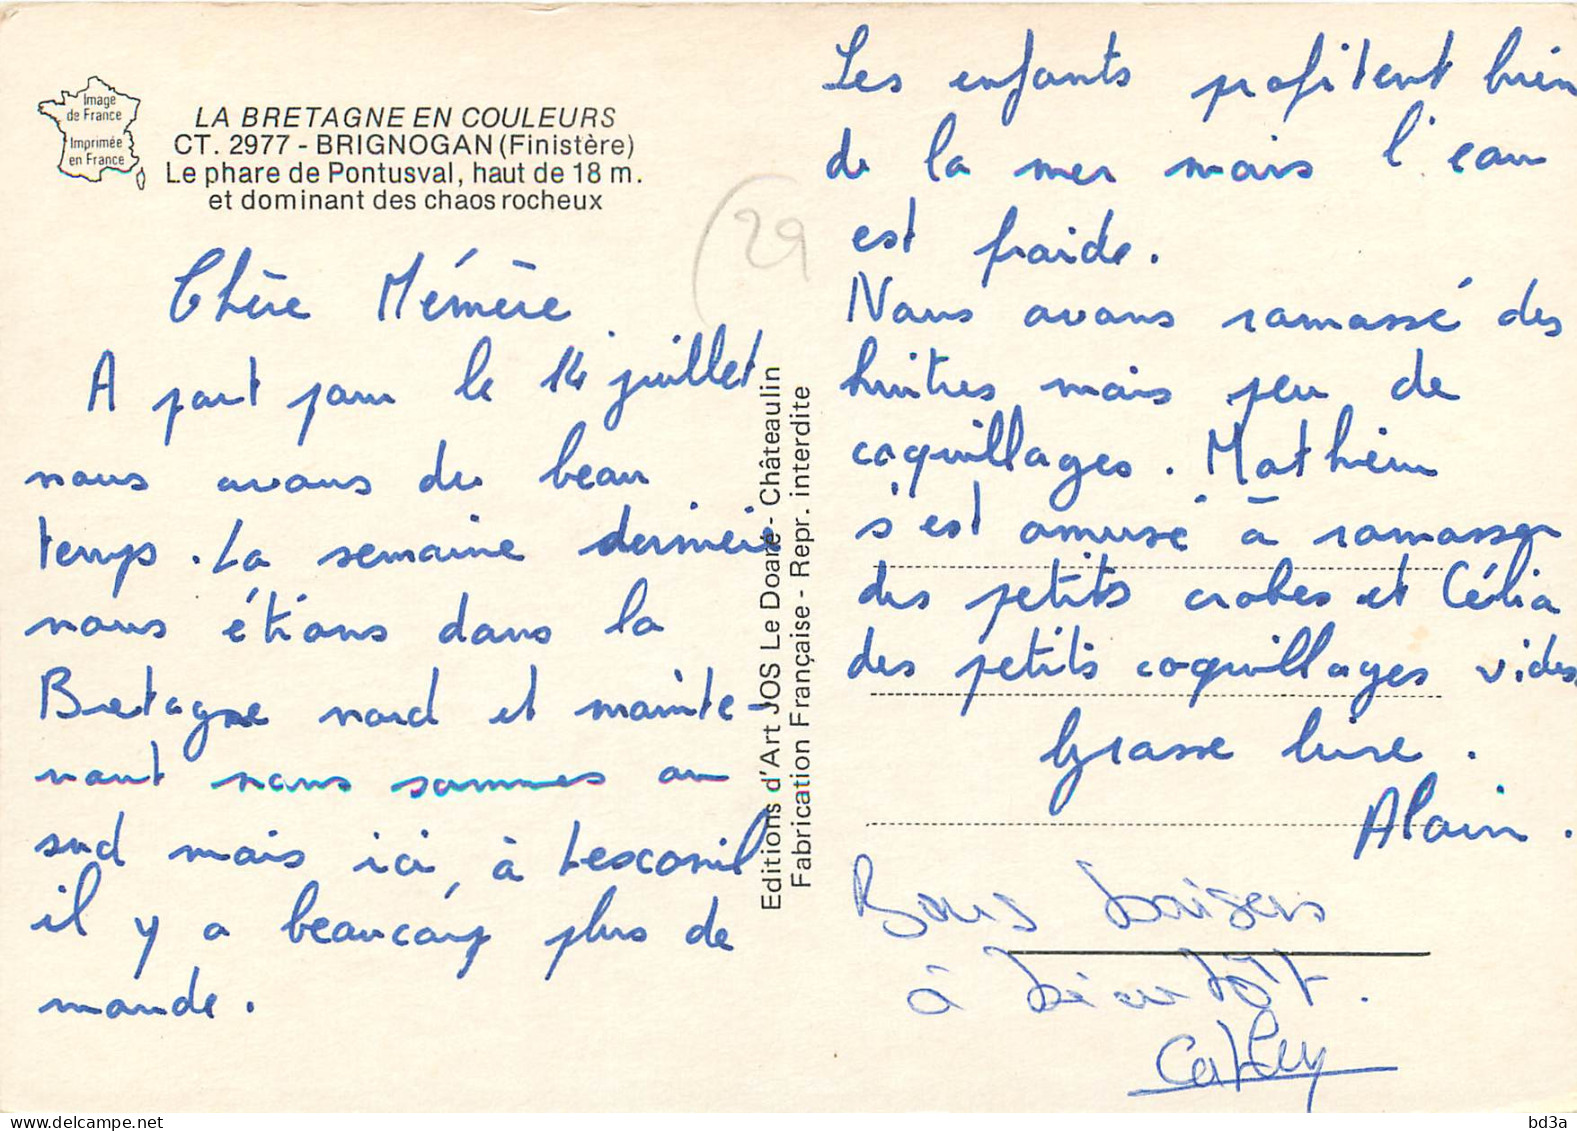 Image
de France
Imprimée
en France
LA BRETAGNE EN COULEURS
CT. 2977 - BRIGNOGAN (Finistère)
Le phare de Pontusval, haut de 18 m.
et dominant des chaos rocheux
(29
Chère Mémère
A part pour le 14 juillet
nous avons du beau
temps. La semaine dernière
nous étions dans la
Bretagne nord et mainte-
nant nous sommes au
sud mais ici, à Lesconil
il y a beaucoup plus de
monde.
Editions d'Art JOS Le Doaré - Châteaulin
Fabrication Française - Repr. interdite
Les enfants profitent bien
de la mer mais l'eau
est froide.
Nous avons ramassé des
huitres mais peu de
coquillages. Mathieu
s'est amusé à ramasser
des petits crabes et Célia
des petits coquillages vides
Grosse bise.
Alain.
Bons baisers
à bientôt.
Cathy
delcampe.net
bd3a